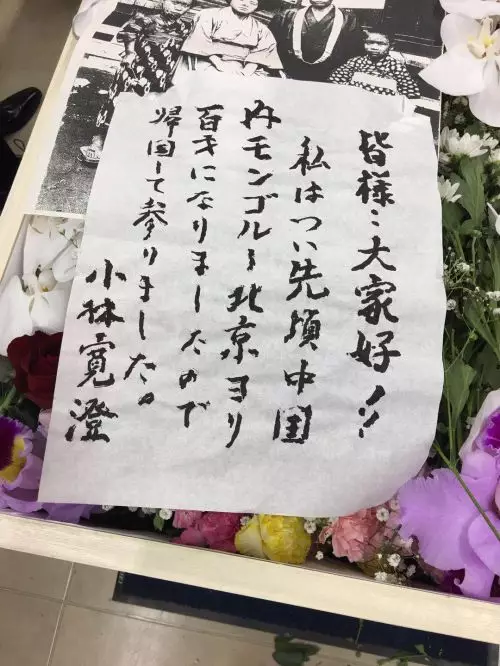 皆様:大家好!!
私はつい先頃中国
内モンゴル〜北京ヨリ
百才になりましたので
帰国して参りました。
小林寛澄